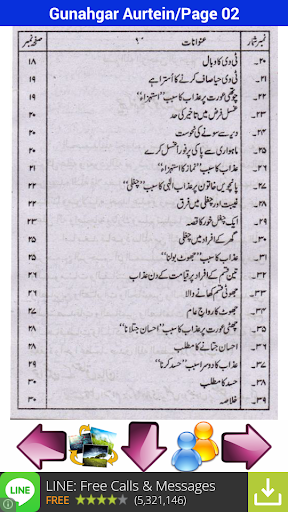 Gunahgar Aurtein/Page 02
نمبر شمار عنوانات صفحہ نمبر
۲۰۔ ٹی وی کا وبال ۱۸
۲۱۔ ٹی وی حیا صاف کرنے کا اُسترا ہے ۱۹
۲۲۔ چوتھی عورت پر عذاب کا سبب ’’استہزاء‘‘ ۱۹
۲۳۔ غسل فرض میں تاخیر کی حد ۲۰
۲۴۔ دیر سے سونے کی نحوست ۲۰
۲۵۔ ماہواری سے پاکی پر فوراً غسل کرے ۲۰
۲۶۔ عذاب کا سبب ’’نماز کا استہزاء‘‘ ۲۱
۲۷۔ پانچویں خاتون پر عذاب الٰہی کا سبب ’’چغلی‘‘ ۲۲
۲۸۔ غیبت اور چغلی میں فرق ۲۲
۲۹۔ ایک چغل خور کا قصہ ۲۳
۳۰۔ گھر کے افراد میں چغلی ۲۵
۳۱۔ عذاب کا سبب ’’جھوٹ بولنا‘‘ ۲۵
۳۲۔ تین قسم کے افراد پر قیامت کے دن عذاب
۳۳۔ جھوٹی قسم کھانے والا
۳۴۔ جھوٹ کا رواج عام
۳۵۔ چھٹی عورت پر عذاب کا سبب ’’احسان جتلانا‘‘ ۲۸
۳۶۔ احسان جتانے کا مطلب ۲۸
۳۷۔ عذاب کا دوسرا سبب ’’حسد کرنا‘‘ ۲۹
۳۸۔ حسد کا مطلب ۳۰
۳۹۔ خلاصہ ۳۰
LINE
LINE: Free Calls & Messages
FREE (5,321,146)